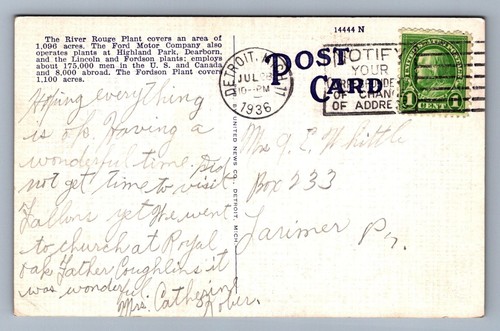 The River Rouge Plant covers an area of
1,096 acres. The Ford Motor Company also
operates plants at Highland Park, Dearborn,
and the Lincoln and Fordson plants; employs
about 175,000 men in the U. S. and Canada
and 8,000 abroad. The Fordson Plant covers
1,100 acres.
14444 N
POST
CARD
DETROIT, MICH. 11
JUL
10-PM
1936
NOTIFY
YOUR
OF CHAN
OF ADDRE
1 CENT 1
Hoping everything
is o.k. Having a
wonderful time. Did
not get time to visit
Fallons yet. We went
to church at Royal
oak Father Coughlins it
was wonderful
Mrs. Catherine
Kober.
UNITED NEWS CO., DETROIT, MICH.
Mrs J. C. Whittle
Box 233
Larimer Pa.